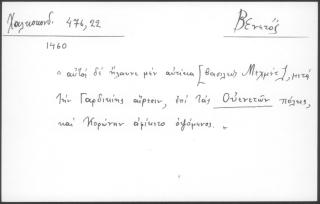 Χαλκοκονδ. 476,22
Βενετός
1460
" αὐτὸς δὲ ἤλαυνε μὲν αὐτίκα [βασιλεὺς Μεχμέτ], μετὰ
τὴν Γαρδικίης αἵρεσιν, ἐπὶ τὰς Οὐενετῶν πόλεις,
καὶ Κορώνην ἀφίκετο ὀψόμενος. "